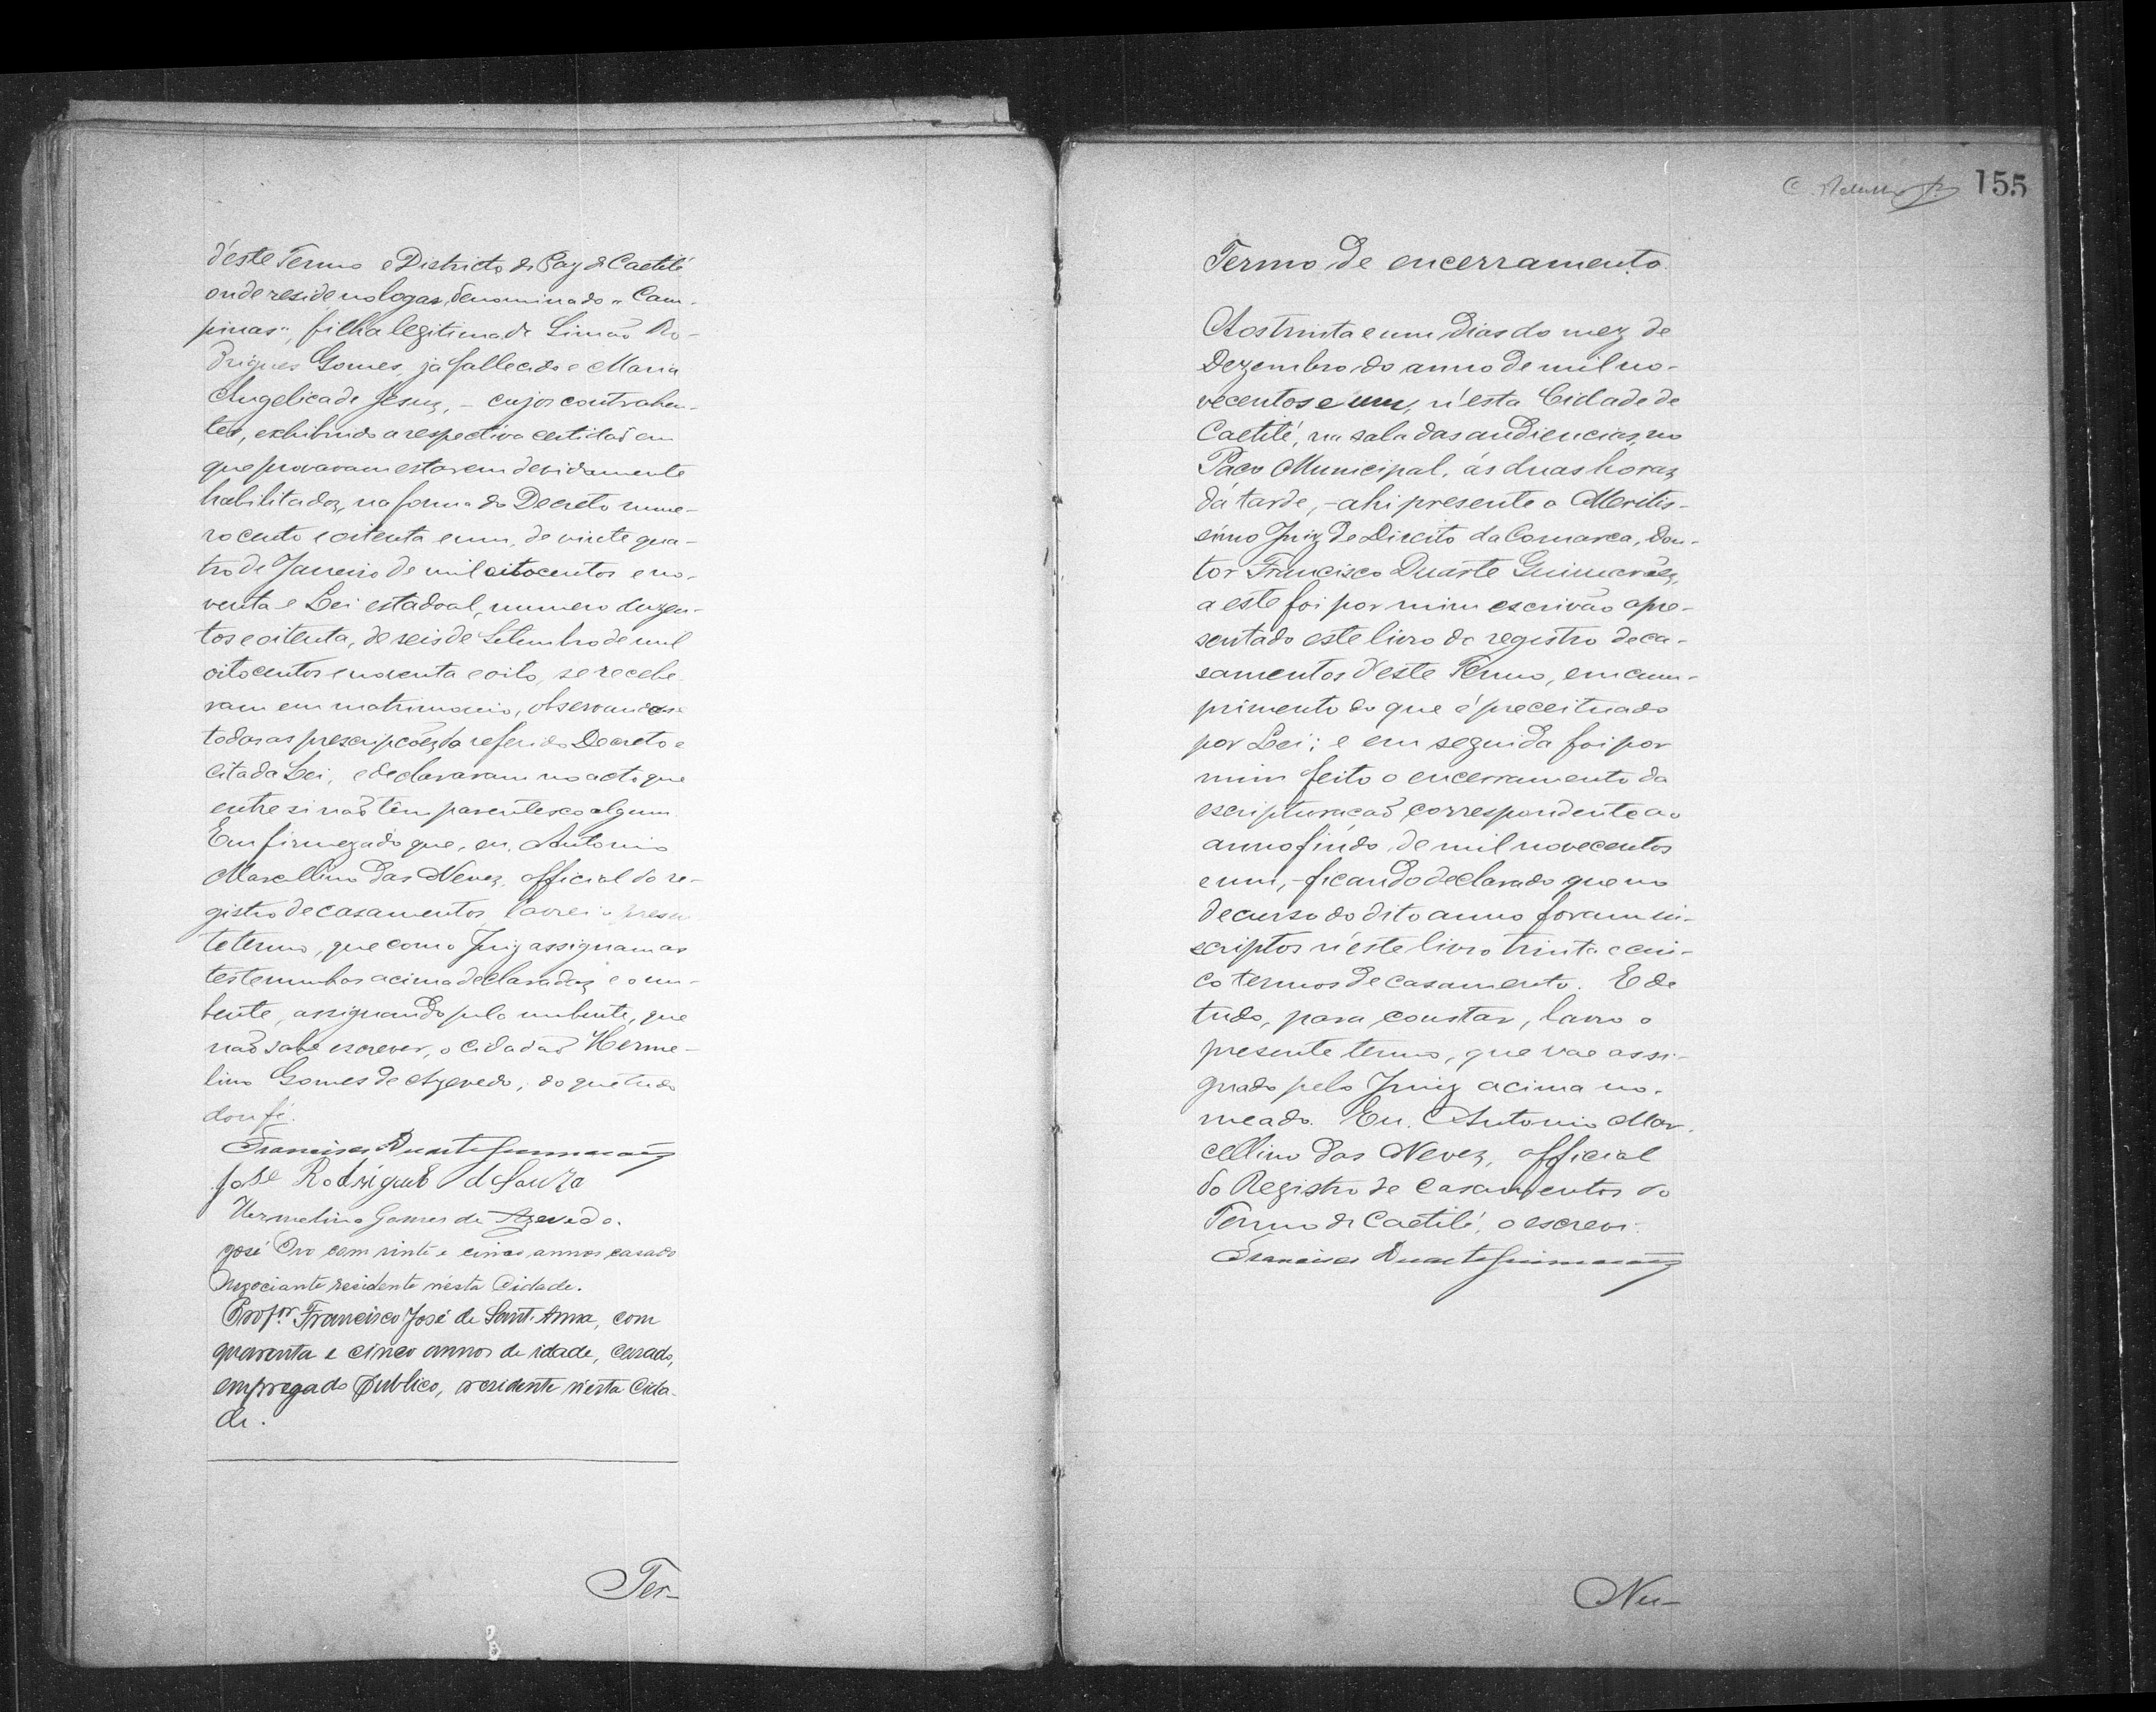 d'este Termo e Districto de Paz de Caetité
onde reside no logar denominado "Cam-
pinas", filha legitima de Simaõ Ro-
drigues Gomes, já fallecido e Maria
Angelica de Jesus, - cujos contrahen-
tes, exhibindo a respectiva certidaõ em
que provavam estarem devidamente
habilitados, na forma do Decreto nume-
ro cento e oitenta e um, de vinte qua-
tro de Janeiro de mil oitocentos e no-
venta e Lei estadoal, numero duzen-
tos e oitenta, de seis de Setembro de mil
oitocentos e noventa e oito, se recebe-
ram em matrimonio, observando-se
todas as prescripções do referido Decreto e
citada Lei, e declararam no acto que
entre si naõ têm parentesco algum.
Em firmeza do que, eu, Antonio
Marcellino das Neves, official do re-
gistro de casamentos lavrei o presen
te termo, que com o Juiz assignam as
testemunhas acima declaradas e o nu-
bente, assignando pela nubente, que
naõ sabe escrever, o cidadaõ Herme-
lino Gomes de Azevedo; do que tudo
dou fé.
Francisco Duarte Guimarães
José Rodrigues de Souza
Hermelino Gomes de Azevedo.
José com vinte e cinco annos casado
Negociante residente n'esta Cidade.
Profor. Francisco José de Sant'Anna, com
quarenta e cinco annos de idade, casado,
empregado publico, residente n'esta Cida-
de.
Ter-
155
Termo de encerramento.
Aos trinta e um dias do mez de
Dezembro do anno de mil no-
vecentos e um, n'esta Cidade de
Caetité, na sala das audiencias, no
Paço Municipal, ás duas horas
da tarde, - ahi presente o Meritis-
simo Juiz de Direito da Comarca, Dou-
tor Francisco Duarte Guimarães,
a este foi por mim escrivão apre-
sentado este livro do registro de ca-
samentos d'este Termo, em cum-
primento do que é preceituado
por Lei; e em seguida foi por
mim feito o encerramento da
escripturacaõ correspondente ao
anno findo de mil novecentos
e um, - ficando declarado que no
decurso do dito anno foram in-
scriptos n'este livro trinta e cin-
co termos de casamento. E de
tudo, para constar, lavro o
presente termo, que vae assi-
gnado pelo Juiz acima no-
meado. Eu, Antonio Mar-
cellino das Neves, official
do Registro de Casamentos do
Termo de Caetité, o escrevi.
Francisco Duarte Guimarães
Nu-